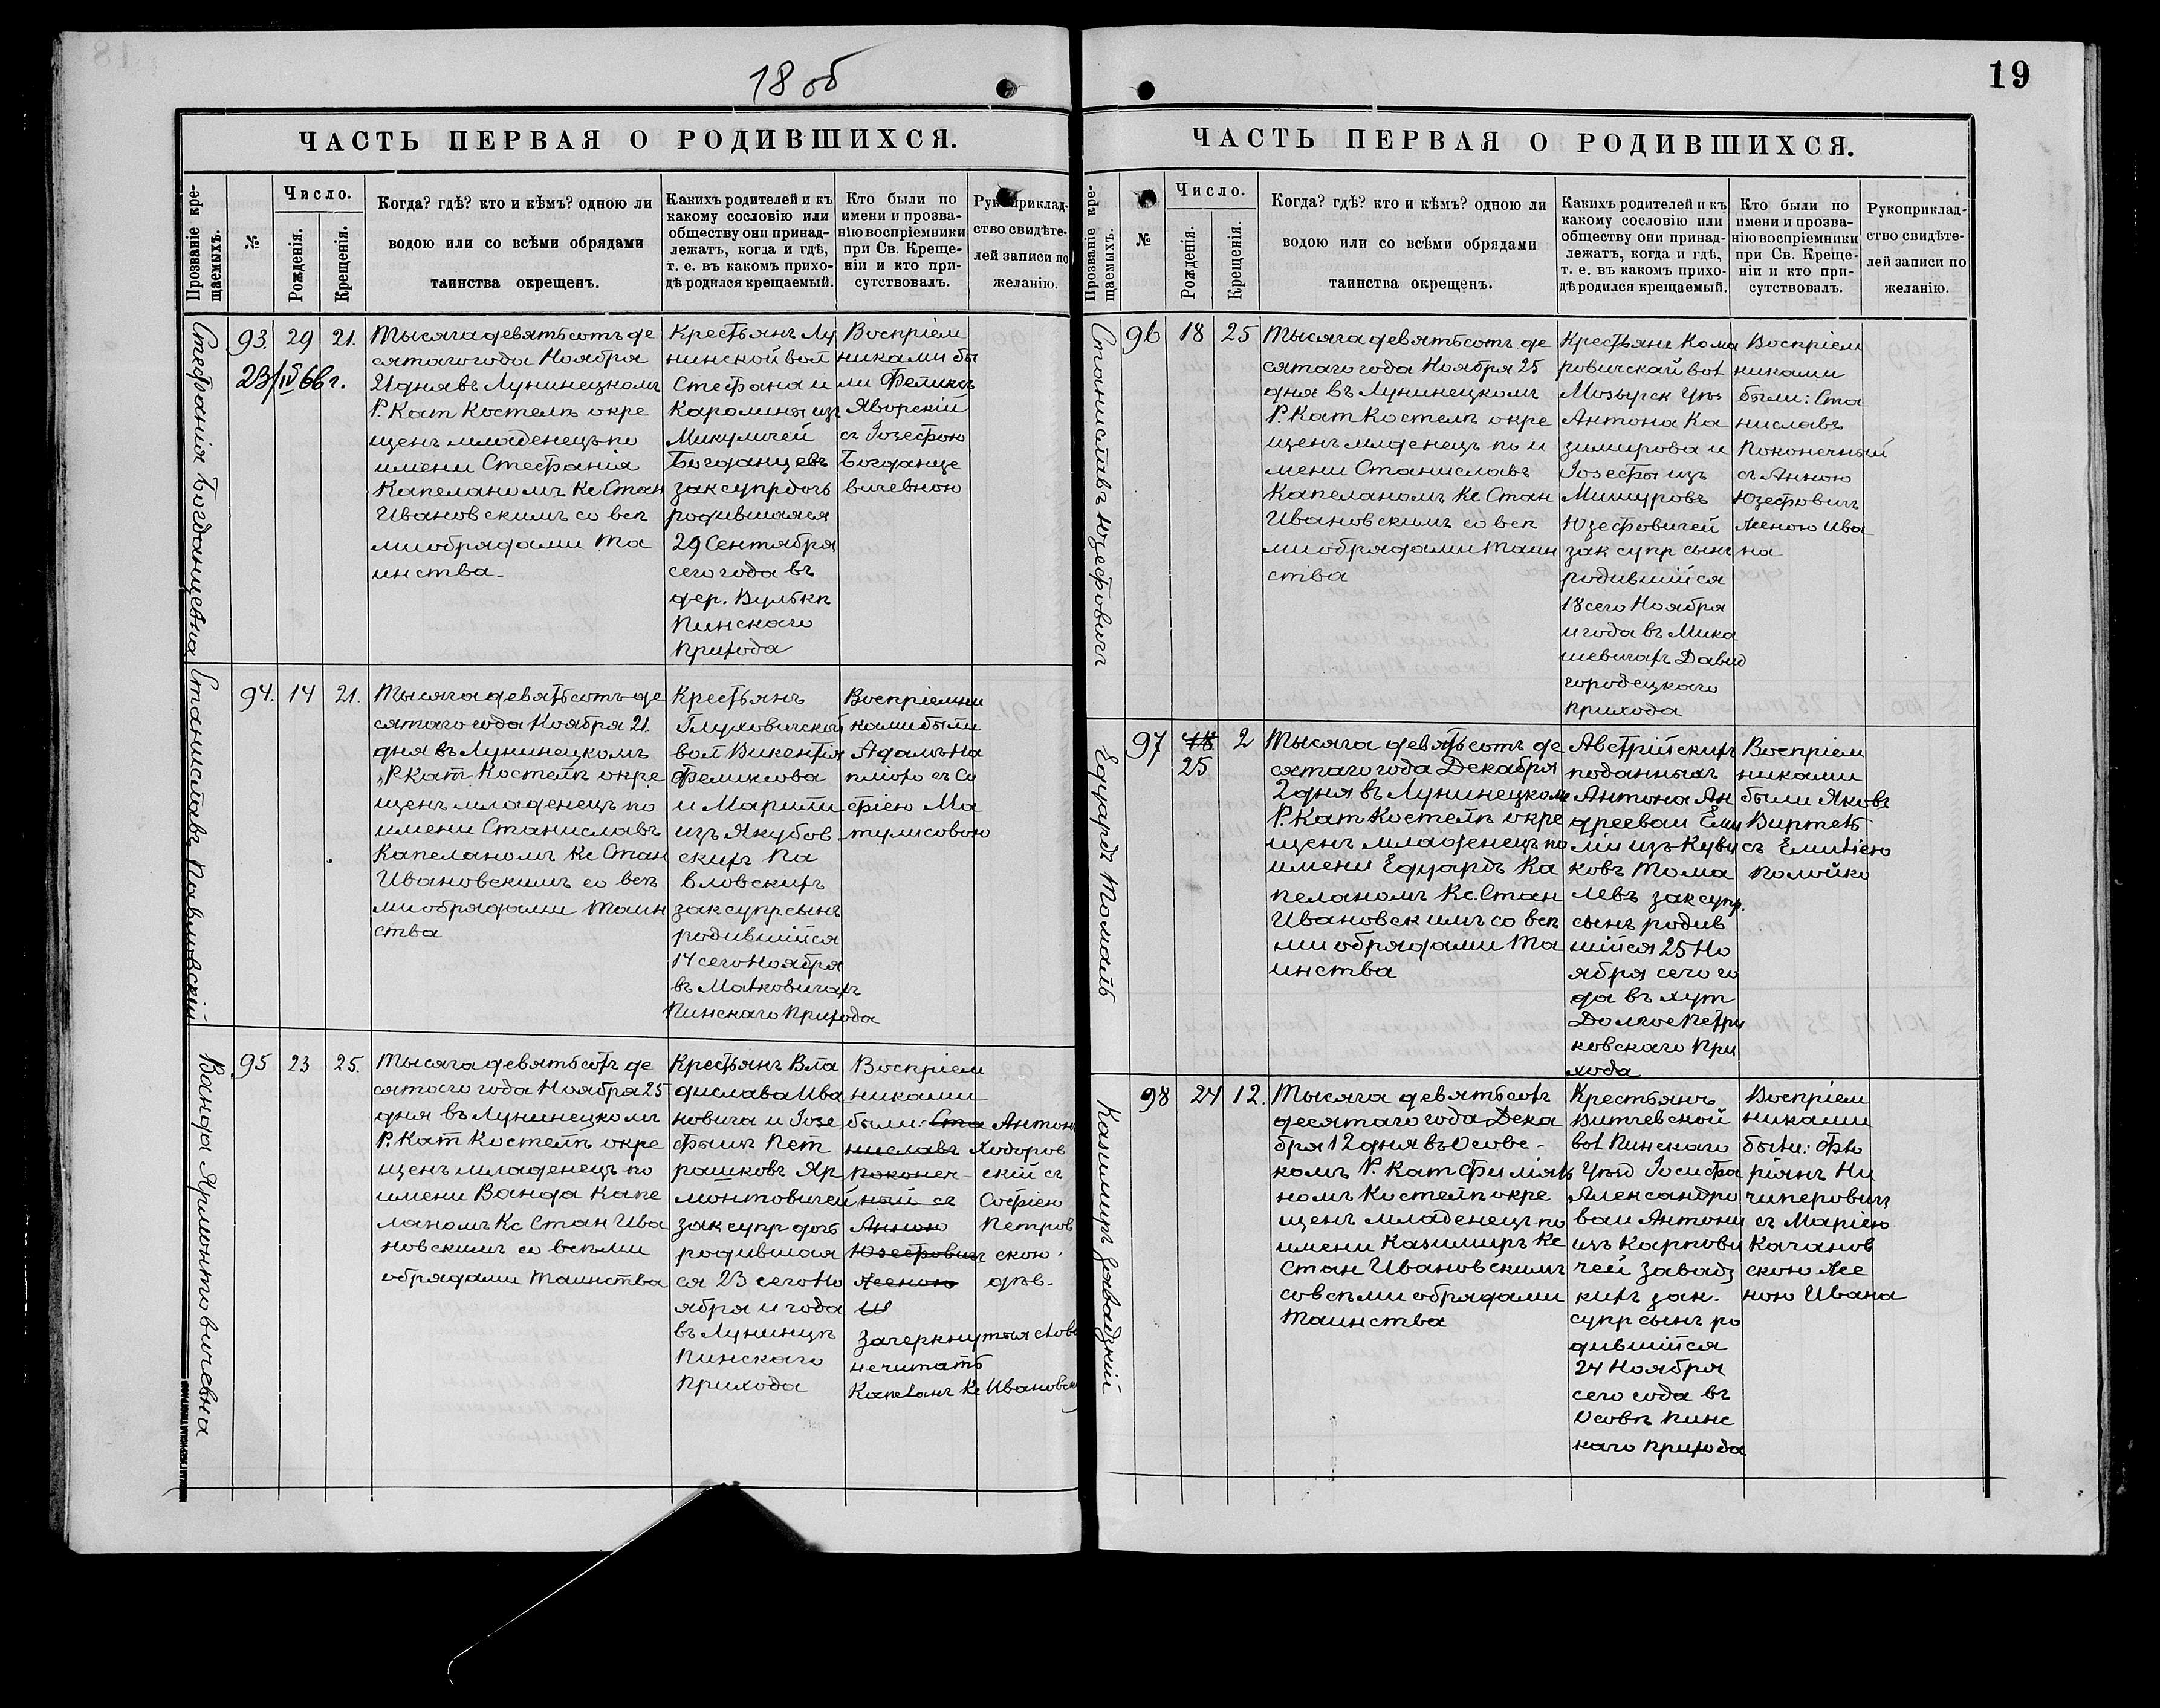 18 об
ЧАСТЬ ПЕРВАЯ О РОДИВШИХСЯ.
Прозваніе кре-
щаемыхъ.
№
Число.
Рожденія.
Крещенія.
Когда? гдѣ? кто и кѣмъ? одною ли
водою или со всѣми обрядами
таинства окрещенъ.
Какихъ родителей и къ
какому сословію или
обществу они принад-
лежатъ, когда и гдѣ,
т. е. въ какомъ прихо-
дѣ родился крещаемый.
Кто были по
имени и прозва-
нію воспріемники
при Св. Креще-
ніи и кто при-
сутствовалъ.
Рукоприклад-
ство свидѣте-
лей записи по
желанію.
Стефанія Богданцевна
93.
23/IV 66 г.
29
21.
Тысяча девятьсотъ де
сятаго года Ноября
21 дня въ Лунинецкомъ
Р. Кат Костелѣ окре
щенъ младенецъ по
имени Стефанія
Капеланомъ Кс Стан
Ивановскимъ со всѣ
ми обрядами Та
инства
Крестьянъ Лу
нинской вол
Стефана и
Каролины изъ
Микуличей
Богданцевъ
зак супр дочь
родившаяся
29 Сентября
сего года въ
дер. Вулькѣ
Пинскаго
Прихода
Воспріем
никами бы
ли Феликсъ
Яворскій
съ Іозефою
Богданце
вичевною
Станиславъ Павловскій
94.
14
21.
Тысяча девятьсотъ де
сятаго года Ноября 21.
дня въ Лунинецкомъ
Р. Кат Костелѣ окре
щенъ младенецъ по
имени Станиславъ
Капеланомъ Кс Стан
Ивановскимъ со всѣ
ми обрядами Таин
ства
Крестьянъ
вол Викентія
Феликсова
и Маріи
изъ Якубов
скихъ Па
вловскихъ
зак супр сынъ
родившійся
14 сего Ноября
въ Малковичахъ
Пинскаго Прихода
Воспріемни
ками были
съ Со
фіею Ма
тулисовою
Ванда Ярмонтовичевна
95
23
25.
Тысяча девятьсотъ де
сятаго года Ноября 25
дня въ Лунинецкомъ
Р. Кат Костелѣ окре
щенъ младенецъ по
имени Ванда Капе
ланомъ Кс Стан Ива
новскимъ со всѣми
обрядами Таинства
Крестьянъ Вла
дислава Ива
новича и Іозе
фы изъ Пет
рашковъ Яр
монтовичей
зак супр дочь
родившая
ся 23 сего Но
ября и года
въ Лунинцѣ
Пинскаго
Прихода
Воспріем
никами
были: Ста
ниславъ
Поконеч-
ный съ
Анною
Юзефовичъ
женою
Ш
Антонъ
Ходоров
скій съ
Софіею
Петров
скою
дѣв.
Зачеркнутыя слова
не читать
Капеланъ Кс Ивановскій
19
ЧАСТЬ ПЕРВАЯ О РОДИВШИХСЯ.
Прозваніе кре-
щаемыхъ.
№
Число.
Рожденія.
Крещенія.
Когда? гдѣ? кто и кѣмъ? одною ли
водою или со всѣми обрядами
таинства окрещенъ.
Какихъ родителей и къ
какому сословію или
обществу они принад-
лежатъ, когда и гдѣ,
т. е. въ какомъ прихо-
дѣ родился крещаемый.
Кто были по
имени и прозва-
нію воспріемники
при Св. Креще-
ніи и кто при-
сутствовалъ.
Рукоприклад-
ство свидѣте-
лей записи по
желанію.
Станиславъ Юзефовичъ
96
18
25
Тысяча девятьсотъ де
сятаго года Ноября 25
дня въ Лунинецкомъ
Р. Кат Костелѣ окре
щенъ младенецъ по и
мени Станиславъ
Капеланомъ Кс Стан
Ивановскимъ со всѣ
ми обрядами Таин
ства
Крестьянъ Кома
ровичской вол
Мозырск Уѣз
Антона Ка
зимирова и
Іозефы изъ
Мишуровъ
Юзефовичей
зак супр сынъ
родившійся
18 сего Ноября
и года въ Мика
шевичахъ Давид
городецкаго
Прихода
Воспріем
никами
были: Ста
ниславъ
Поконечный
съ Анною
Юзефовичъ
женою Ива
на
Едуардъ Томаль
97
18
25
2
Тысяча девятьсотъ де
сятаго года Декабря
2 дня въ Лунинецкомъ
Р. Кат Костелѣ окре
щенъ младенецъ по
имени Едуардъ Ка
пеланомъ Кс. Стан
Ивановскимъ со всѣ
ми обрядами Та
инства
Австрійскихъ
поданныхъ
Антона Ан
дреева и Еми
ліи изъ Куви
ковъ Тома
левъ зак супр.
сынъ родив
шійся 25 Но
ября сего го
да въ хут
Долгое Петри
ковскаго При
хода
Воспріем
никами
были Яковъ
Виртель
съ Емиліею
Полойко
Казимиръ Завадзкій
98
24
12.
Тысяча девятьсотъ
десятаго года Дека
бря 12 дня въ Осовс-
комъ Р. Кат Филіяль
номъ Костелѣ окре
щенъ младенецъ по
имени Казимиръ Кс
Стан Ивановскимъ
со всѣми обрядами
Таинства
Крестьянъ
Витчевской
вол Пинскаго
Уѣзд Іосифа
Александро
ва и Антони
изъ Карпови
чей Завадз
кихъ зак.
супр сынъ ро
дившійся
24 Ноября
сего года въ
Осовѣ Пинс
каго Прихода
Воспріем
никами
были: Фло
ріянъ Ни
чипоровичъ
съ Маріею
Качанов
скою же
ною Ивана